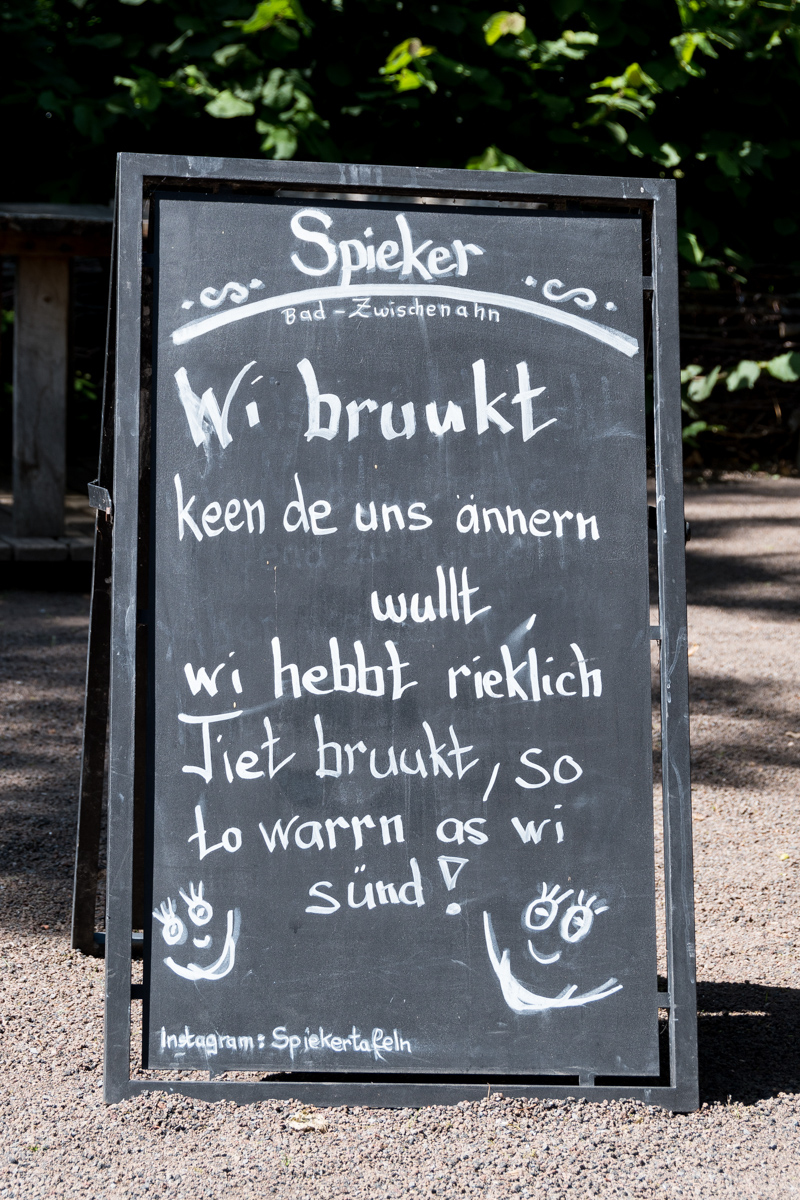 Spieker
Bad-Zwischenahn
Wi bruukt
keen de uns ännern
wullt,
wi hebbt rieklich
Tiet bruukt, so
to warrn as wi
sünd!
Instagram: Spiekertafeln